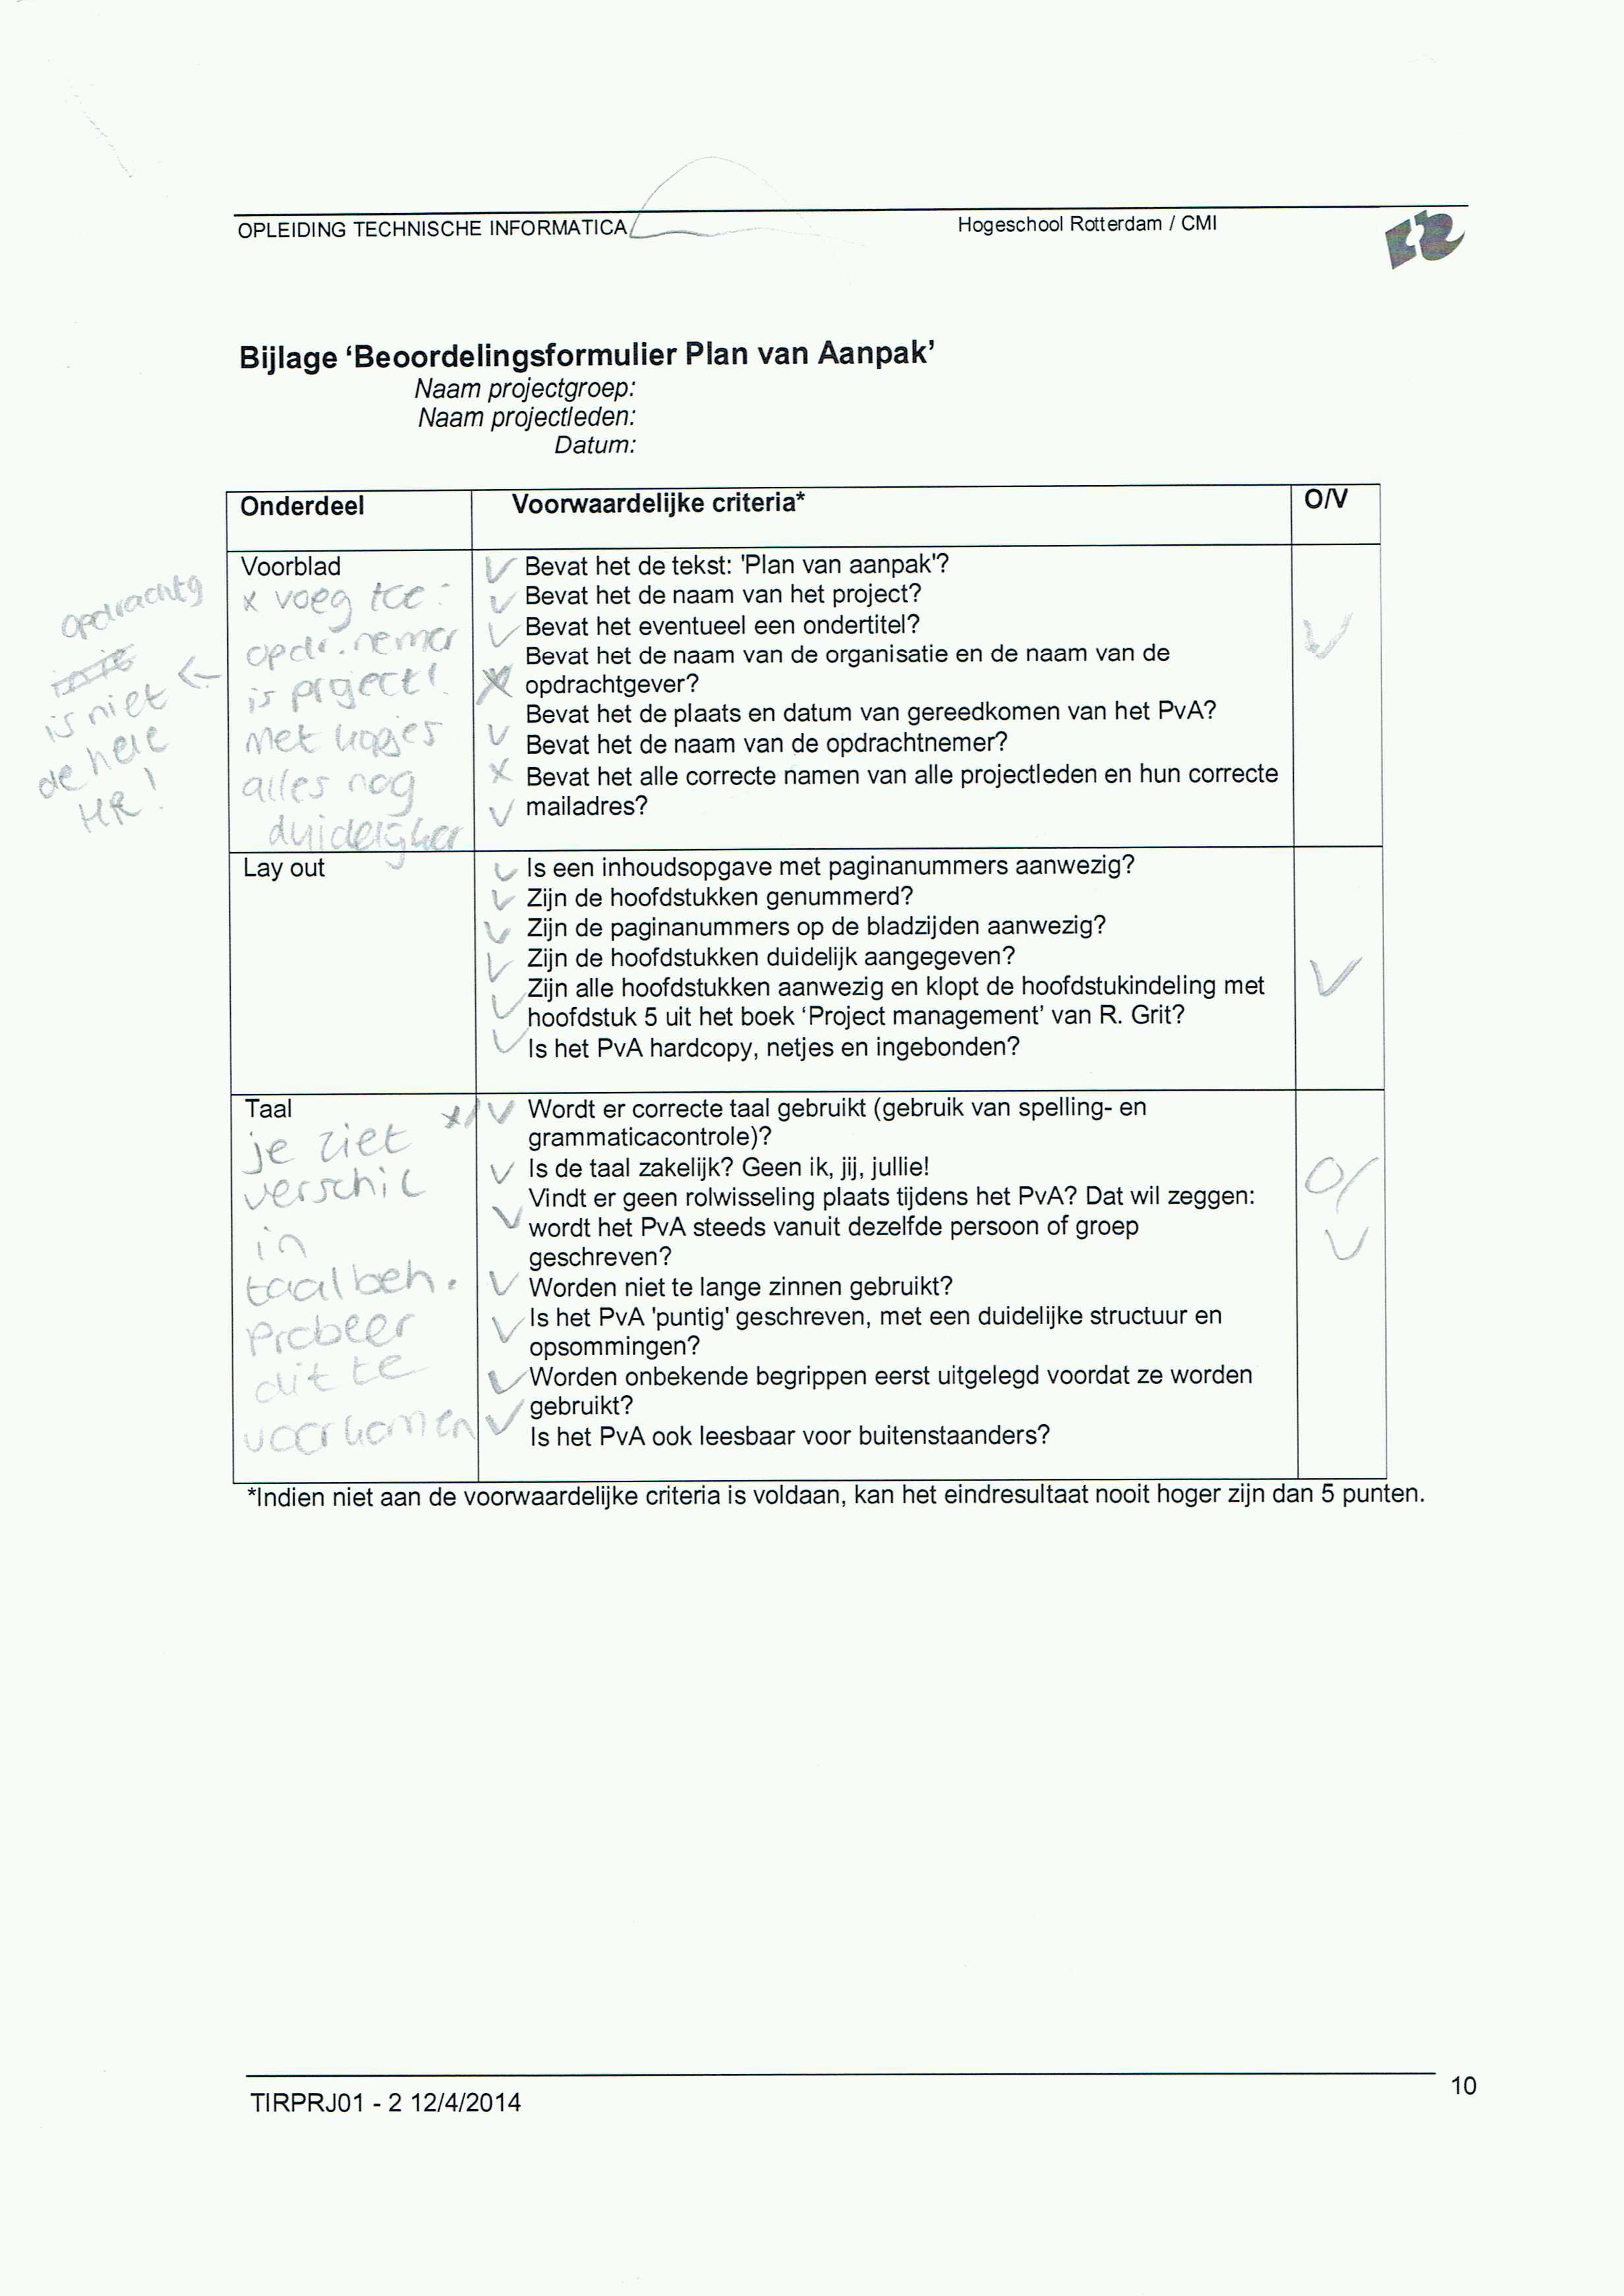 OPLEIDING TECHNISCHE INFORMATICA
Hogeschool Rotterdam / CMI
Bijlage ‘Beoordelingsformulier Plan van Aanpak’
Naam projectgroep:
Naam projectleden:
Datum:
Onderdeel
Voorwaardelijke criteria*
O/V
Voorblad
x voeg toe:
opdr.nemer
is project!
Met kopjes
alles nog
duidelijker
opdrachtg
is niet
de hele
HR!
V Bevat het de tekst: 'Plan van aanpak'?
V Bevat het de naam van het project?
V Bevat het eventueel een ondertitel?
Bevat het de naam van de organisatie en de naam van de
X opdrachtgever?
Bevat het de plaats en datum van gereedkomen van het PvA?
V Bevat het de naam van de opdrachtnemer?
X Bevat het alle correcte namen van alle projectleden en hun correcte
V mailadres?
V
Lay out
V Is een inhoudsopgave met paginanummers aanwezig?
V Zijn de hoofdstukken genummerd?
V Zijn de paginanummers op de bladzijden aanwezig?
V Zijn de hoofdstukken duidelijk aangegeven?
V Zijn alle hoofdstukken aanwezig en klopt de hoofdstukindeling met
hoofdstuk 5 uit het boek ‘Project management’ van R. Grit?
V Is het PvA hardcopy, netjes en ingebonden?
V
Taal
je ziet
verschil
in
taalbeh.
Probeer
dit te
voorkomen
x/V Wordt er correcte taal gebruikt (gebruik van spelling- en
grammaticacontrole)?
V Is de taal zakelijk? Geen ik, jij, jullie!
V Vindt er geen rolwisseling plaats tijdens het PvA? Dat wil zeggen:
wordt het PvA steeds vanuit dezelfde persoon of groep
geschreven?
V Worden niet te lange zinnen gebruikt?
V Is het PvA 'puntig' geschreven, met een duidelijke structuur en
opsommingen?
V Worden onbekende begrippen eerst uitgelegd voordat ze worden
gebruikt?
V Is het PvA ook leesbaar voor buitenstaanders?
O/
V
*Indien niet aan de voorwaardelijke criteria is voldaan, kan het eindresultaat nooit hoger zijn dan 5 punten.
TIRPRJ01 - 2 12/4/2014
10